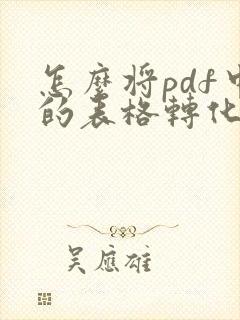 怎麼將pdf中
的表格轉化
吳應雄